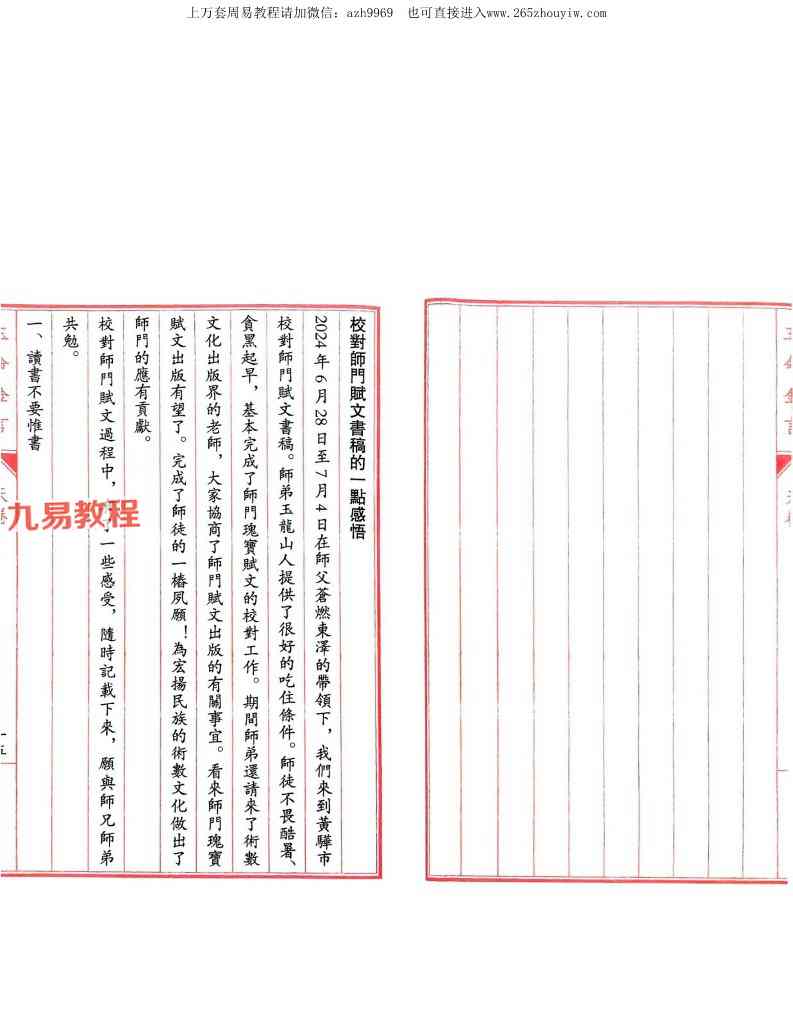 上万套周易教程请加微信：azh9969 也可直接进入www.265zhouyiw.com
校對師門賦文書稿的一點感悟
2024年6月28日至7月4日在師父蒼燃東澤的帶領下，我們來到黃驊市
校對師門賦文書稿。師弟玉龍山人提供了很好的吃住條件。師徒不畏酷暑、
貪黑起早，基本完成了師門瑰寶賦文的校對工作。期間師弟還請來了術數
文化出版界的老師，大家協商了師門賦文出版的有關事宜。看來師門瑰寶
賦文出版有望了。完成了師徒的一樁夙願！為宏揚民族的術數文化做出了
師門的應有貢獻。
校對師門賦文過程中，一些感受，隨時記載下來，願與師兄師弟
共勉。
一、讀書不要惟書
九易教程
十五